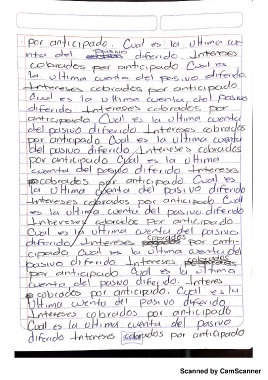 por anticipado. Cual es la ultima cue
nta del pasivo diferido. Intereses
cobrados por anticipado Cual es
la ultima cuenta del pasivo diferido
Intereses cobrados por anticipado
Cual es la ultima cuenta del pasivo
diferido Intereses cobrados por
anticipado. Cual es la ultima cuenta
del pasivo diferido Intereses cobrados
por anticipado Cual es la ultima cuenta
del pasivo diferido. Intereses cobrados
por anticipado Cual es la ultima
cuenta del pasivo diferido Intereses
cobrados por anticipado Cual es
la ultima cuenta del pasivo diferido
Intereses cobrados por anticipado Cual
es la ultima cuenta del pasivo diferido
Intereses cobrados por anticipado
Cual es la ultima cuenta del pasivo
diferido Intereses por anti-
cipado Cual es la ultima cuenta del
pasivo diferido. Intereses
por anticipado Cual es la ultima
cuenta del pasivo diferido. Interes
cobrados por anticipado. Cual es la
ultima cuenta del pasivo diferido
Intereses cobrados por anticipado
Cual es la ultima cuenta del pasivo
diferido Intereses cobrados por anticipado
Scanned by CamScanner